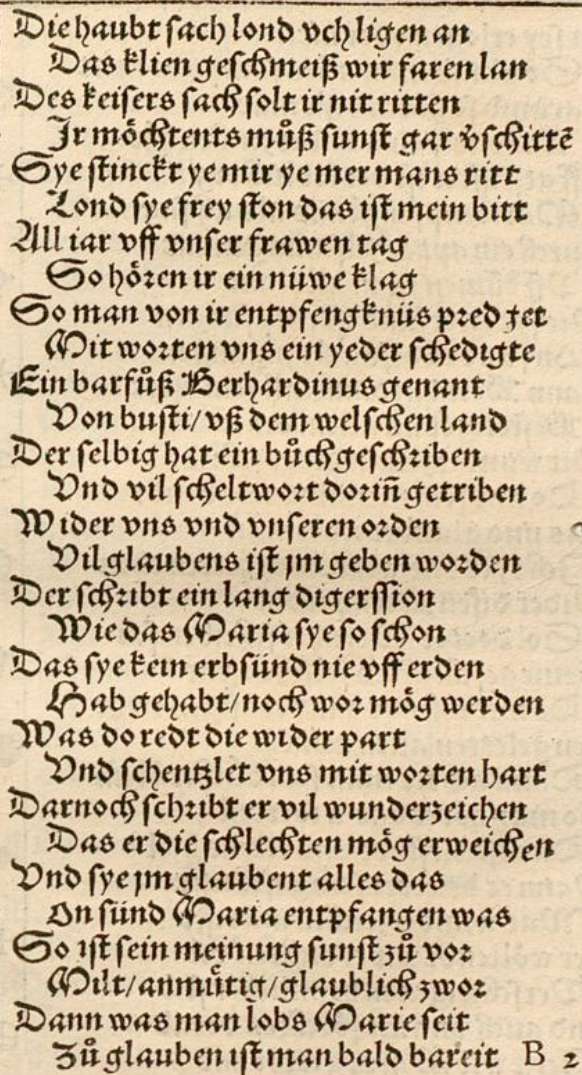 Die haubt sach lond vch ligen an
Das klien geschmeiß wir faren lan
Des keisers sach solt ir nit ritten
Jr möchtents můß sunst gar v̈schittē
Sye stinckt ye mir ye mer mans ritt
Lond sye frey ston das ist mein bitt
All iar vff vnser frawen tag
So hören ir ein nüwe klag
So man von ir entpfengknüs pred get
Mit worten vns ein yeder schedigte
Ein barfůß Berhardinus genant
Von busti/ vß dem welschen land
Der selbig hat ein bůch geschriben
Vnd vil scheltwort dorin̄ getriben
Wider vns vnd vnseren orden
Vil glaubens ist jm geben worden
Der schribt ein lang digerssion
Wie das Maria sye so schon
Das sye kein erbsünd nie vff erden
Hab gehabt/ noch wor mög werden
Was do redt die wider part
Vnd schentzlet vns mit worten hart
Darnoch schribt er vil wunderzeichen
Das er die schlechten mög erweichen
Vnd sye jm glaubent alles das
On sünd Maria entpfangen was
So ist sein meinung sunst zů vor
Milt/ anmůtig/ glaublich zwor
Dann was man lobs Marie seit
Zů glauben ist man bald bareit B 2